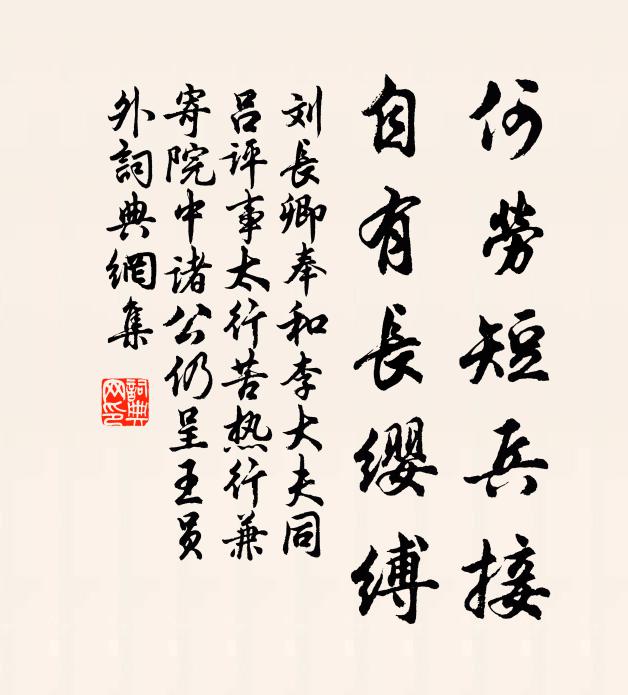 何勞短兵接
自有長缨缚
刘長卿奉和李大夫同
吕评事太行苦热行兼
寄院中诸公仍呈王员
外詞典網集
詞典
网印